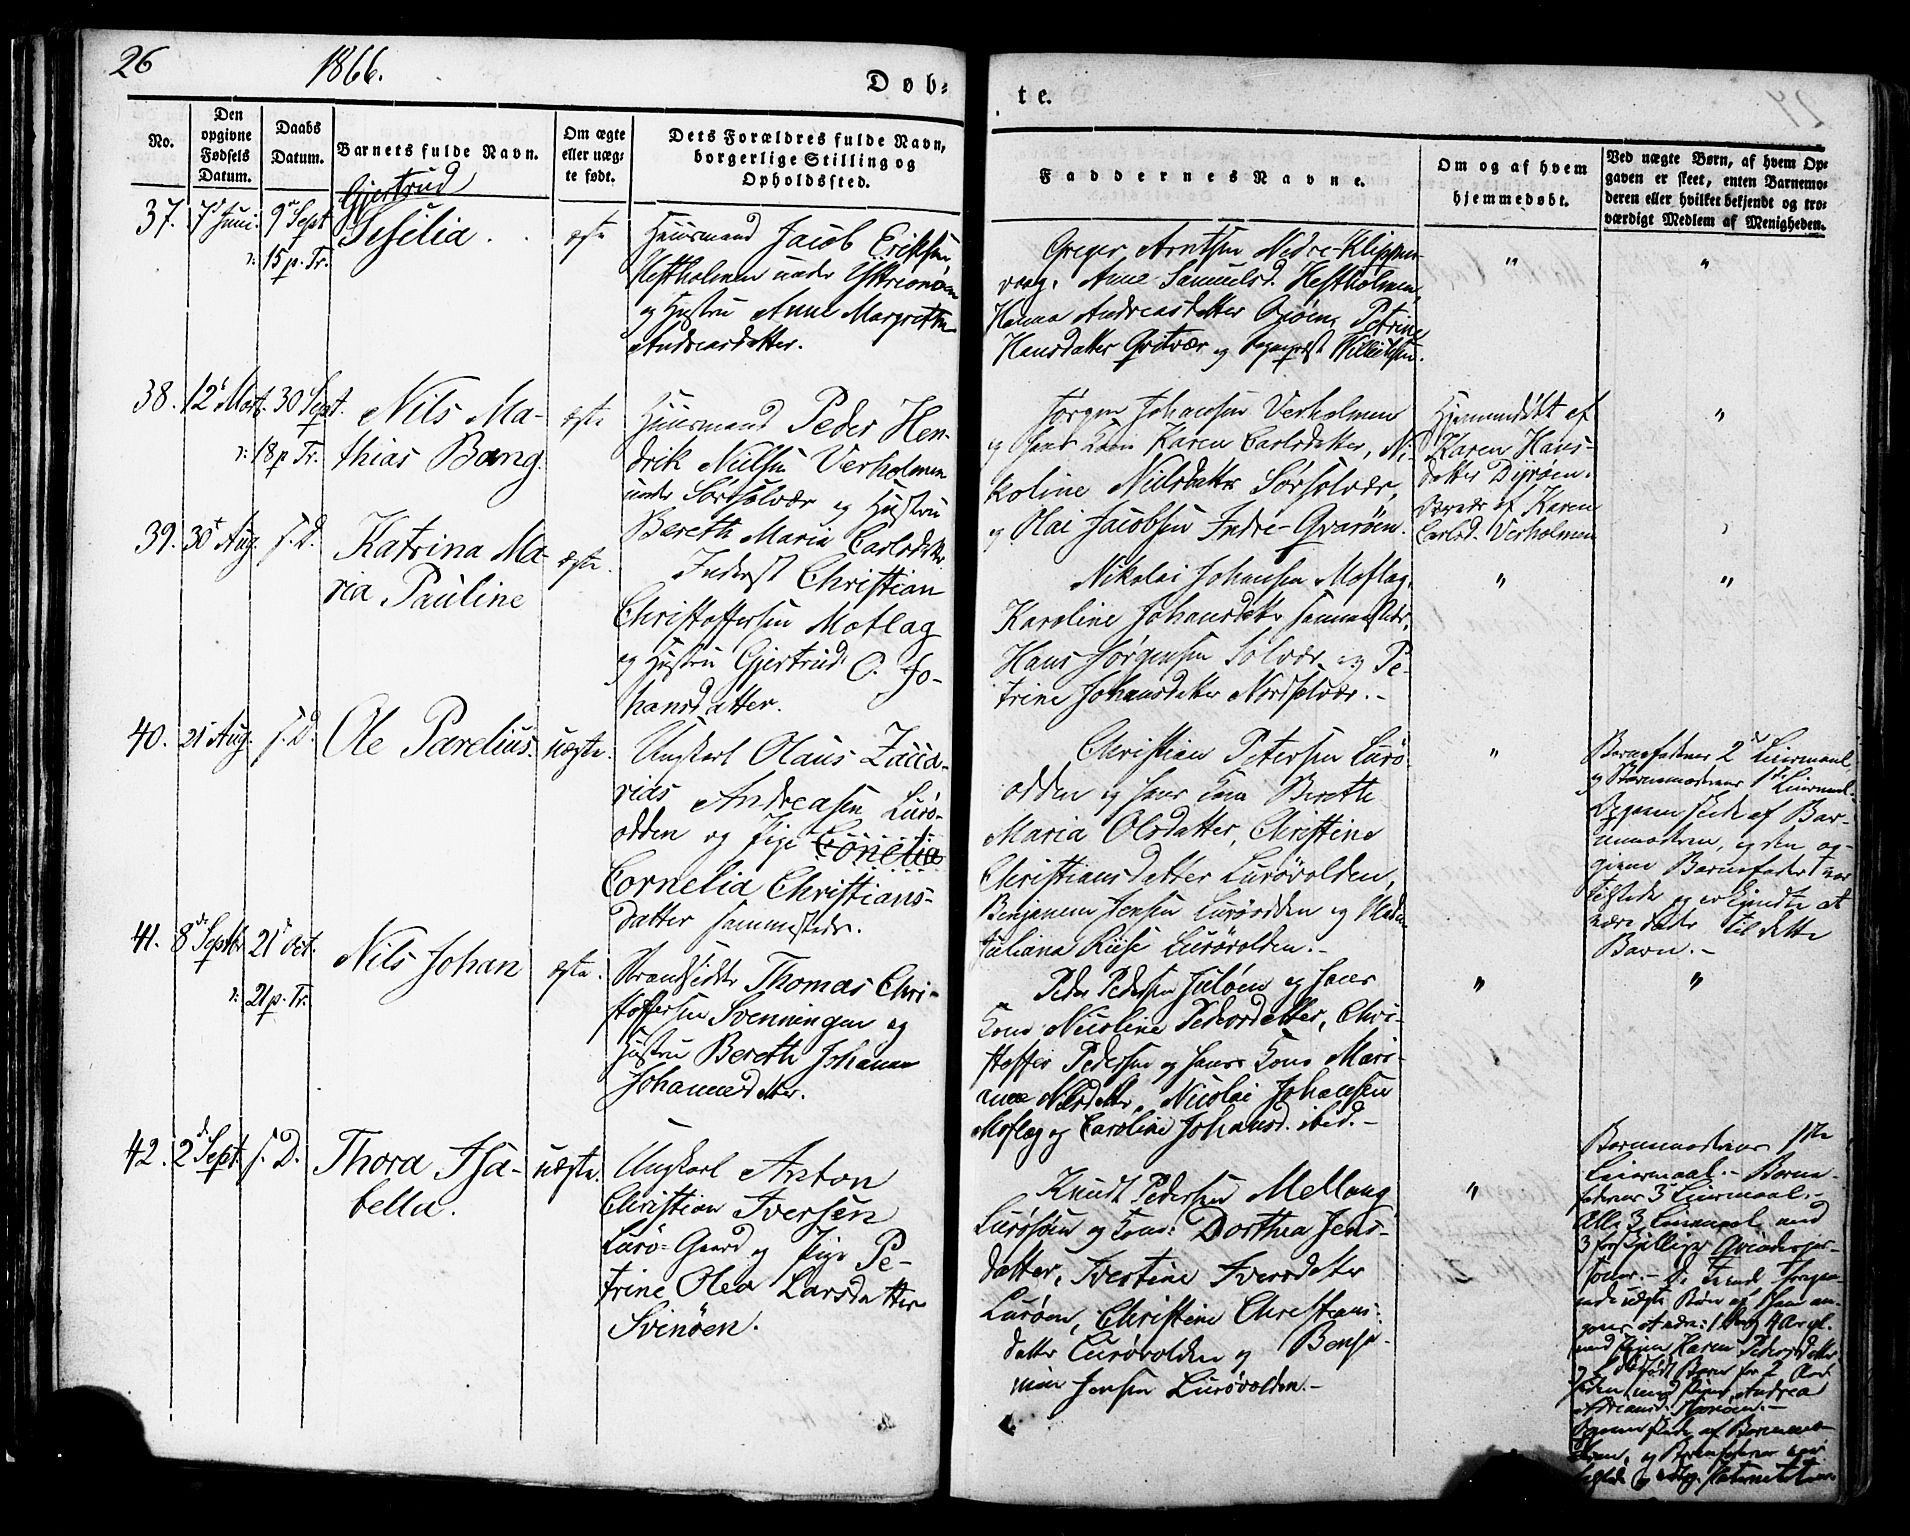 26
1866.
Døb-
te.
No.
Den
opgivne
Fødsels
Datum.
Daabs
Datum.
Barnets fulde Navn.
Om ægte
eller uæg-
te født.
Dets Forældres fulde Navn,
borgerlige Stilling og
Opholdssted.
Faddernes Navne.
Om og af hvem
hjemmedøbt.
Ved uægte Børn, af hvem Op-
gaven er skeet, enten Barnemo-
deren eller hvilket bekjendt og tro-
værdigt Medlem af Menigheden.
37.
7 Juni
9 Sept
ɔ: 15 p. Tr.
Gjertrud
Sesilia
ægte
Huusmand Jacob Eriksen
Hestholmen under
og Hustru Anne Margrethe
Andreasdatter.
Greger Arntsen Nedre-Klippin-
vaag, Anne Samuelsd. Hestholmen,
Hanna Andreasdatter Petrine
Hansdatter Qvitvær og
"
"
38.
12 Marts
30 Sept.
ɔ: 18 p Tr.
Nils Ma-
thias Bang.
ægte
Huusmand Peder Hen-
drik Nielsen Verholmen
under Sørsolvær og Hustru
Bereth Maria Carlsdatter
Jørgen Johansen Verholmen
og Hans Kone Karen Carlsdatter, Ni-
koline Nielsdatter Sørsolvær,
og Olai Jacobsen Indre-Qvarøen.
Hjemmedøbt af
Karen Hans-
datter Dyrøen.
af Karen
Carlsd. Verholmen
"
39.
30t Aug.
s. D.
Katrina Ma
ria Pauline
ægte.
Inderst Christian
Christoffersen Moflag
og Hustru Gjertrud O. Jo-
hansdatter.
Nikolai Johansen Moflag,
Karoline Johansdatter sammesteds,
Hans Jørgensen Solvær og Pe-
trine Johansdatter Nordsolvær.-
"
"
40.
21 Aug.
s. D.
Ole Parelius.
uægte.
Ungkarl Olaus Zacca-
rias Andreasen Lurø-
odden og Pige Conelia
Cornelia Christians-
datter sammesteds.
Christian Petersen Lurø-
odden og Hans Kone Bereth
Maria Olsdatter, Christine
Christiansdatter Lurøvolden,
Benjamin Jensen Lurøodden og
Juliana Riise Lurøvolden.-
"
Barnefaderens 2 Leiermaal,
og Barnemoderens 1ste Leiermaal.
Opgaven skede af Bar-
nemoderen, og den op-
givne Barnefader var
tilstede og erkjendte at
være Fader til dette
Barn.-
41.
8de Septbr
21 Oct.
ɔ: 21 p. Tr.
Nils Johan
ægte.
Strandsidder Thomas Chri-
stoffersen Svenningen og
Hustru Bereth Johanna
Johannesdatter.
Peder Pedersen og Hans
Kone Nicoline Pedersdatter, Chri-
stoffer Pedersen og Hans Kone Mari-
Nilsdatter, Nicolai Johansen
Moflag og Caroline Johansd. ibid.-
"
"
42.
2d Sept.
s. D.
Thora Isa-
bella.
uægte.
Ungkarl Anton
Christian Iversen
Lurø-Gaard og Pige Pe-
trine Olea Larsdatter
Svinøen.
Knudt Pedersen
Lurøen og Kone: Dorthea Jens-
datter, Ivertine Iversdatter
Lurøen, Christine Christians-
datter Lurøvolden og Benja-
min Jensen Lurøvolden.-
"
Barnemoderens 1ste
Leiermaal.- Barne-
faderens 3 Leiermaal.-
Alle 3 Leiermaal med
3 forskjellige Qvindeper-
soner.-
uægte Børn af Ham an-
gives at være:
med Pigen Karen Pedersdatter,
født Barn for 2 Aar
siden med Pigen Andrea
Opgaven skede af Barnemo-
deren, og Barnefaderen var
tilstede og